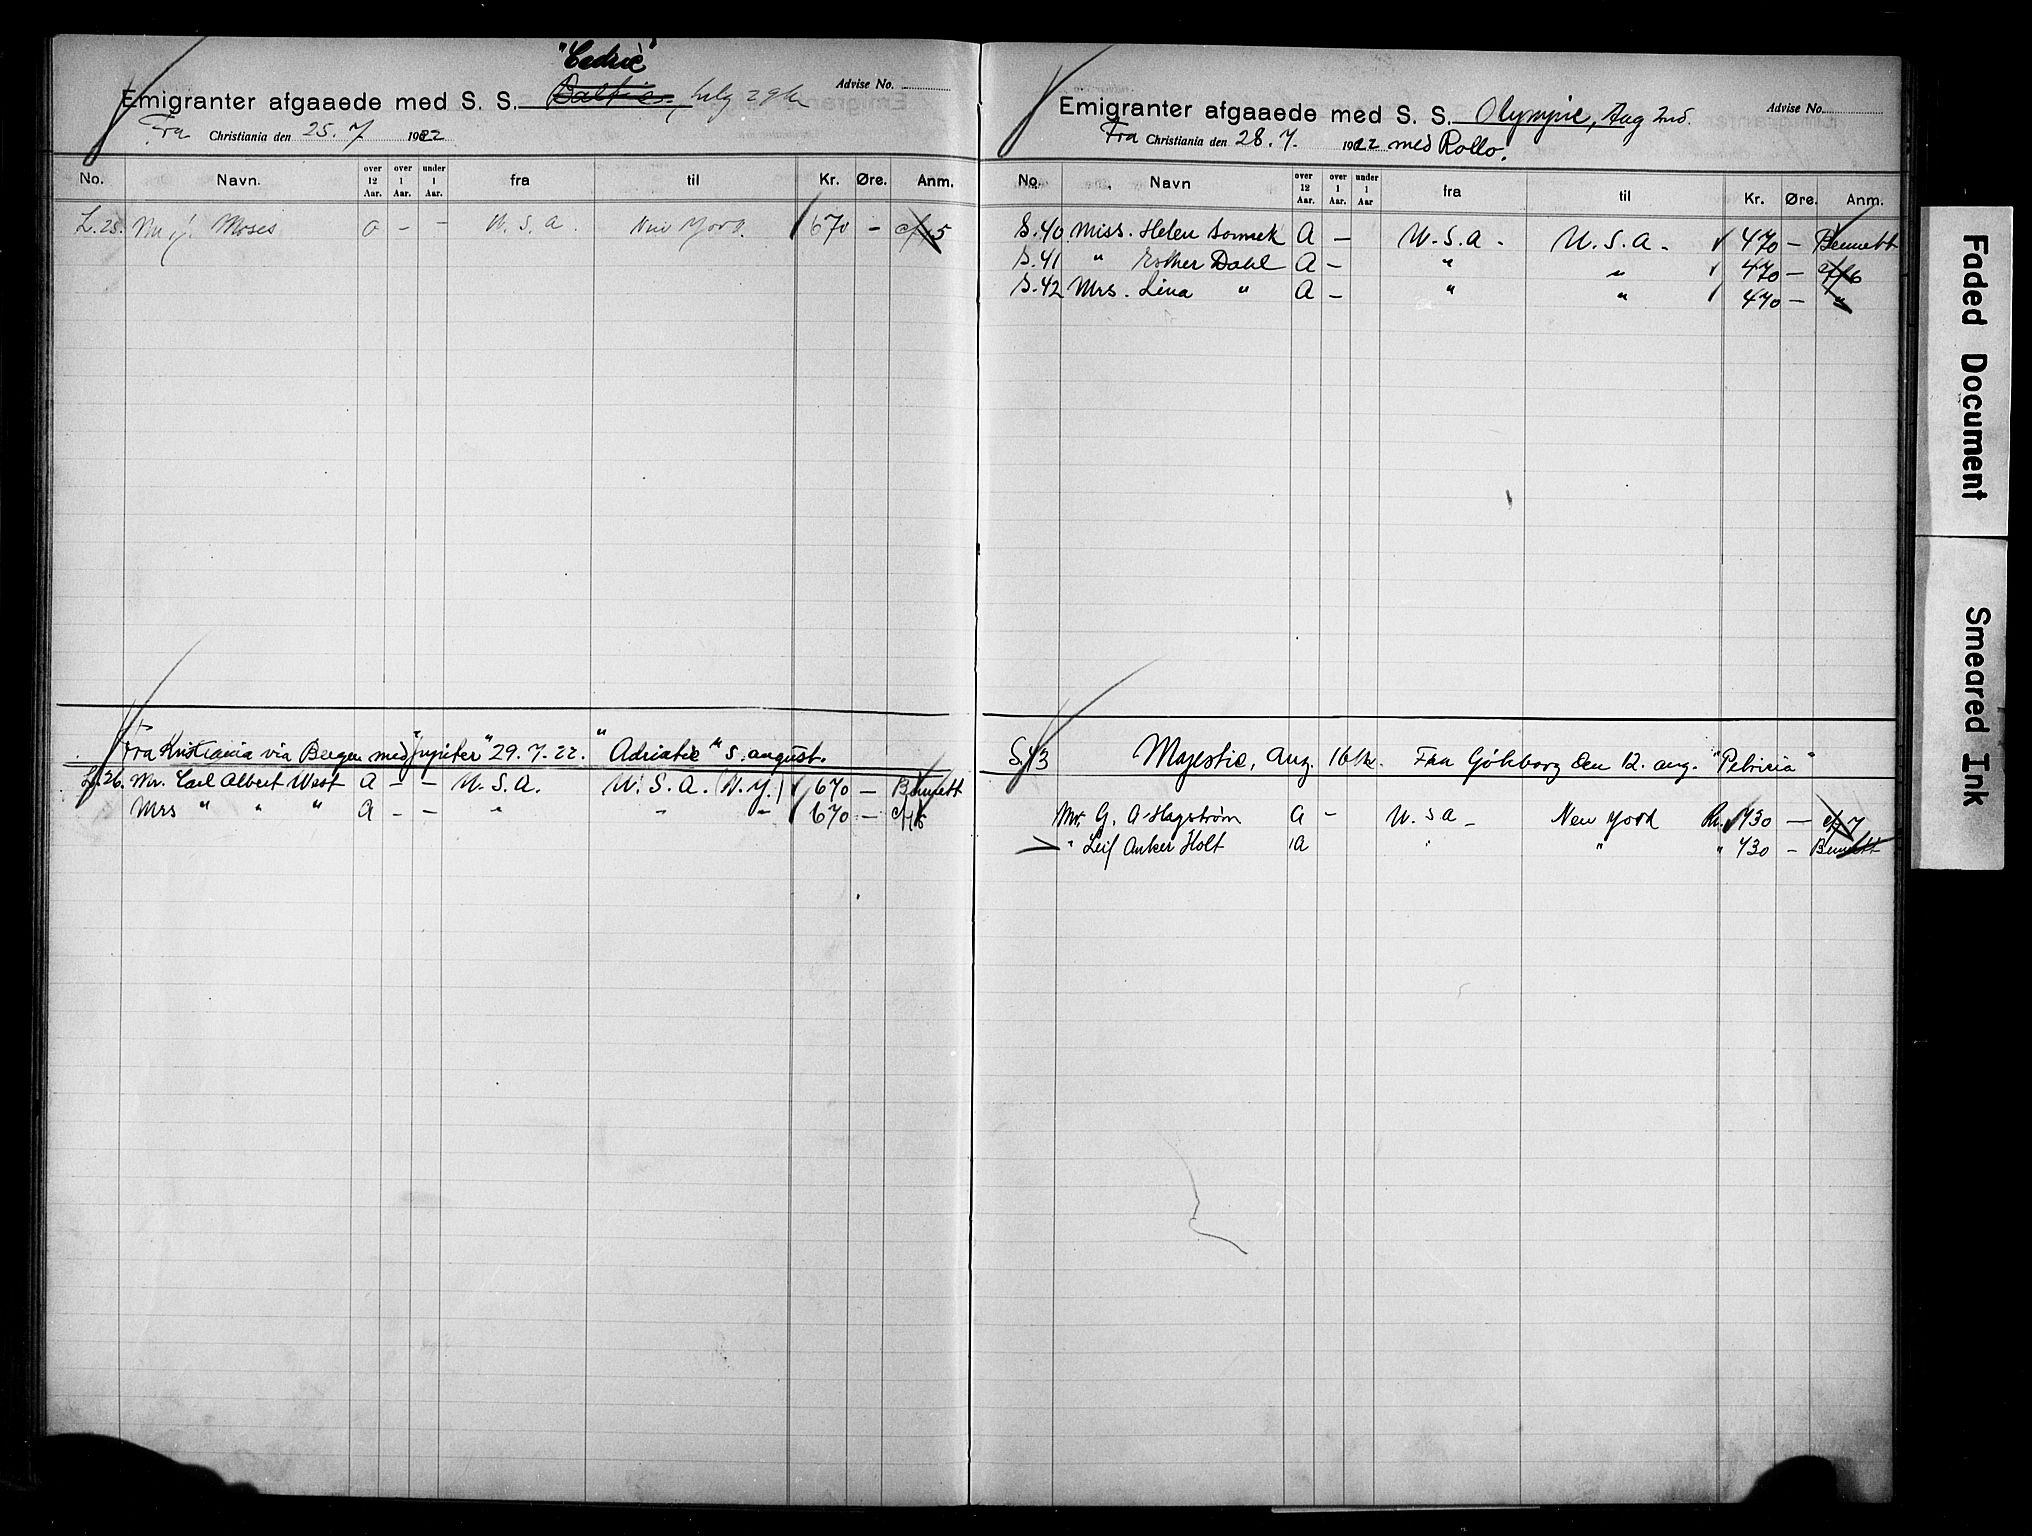 "Cedric"
Emigranter afgaaede med S. S. Baltic, July 29th Advise No.
Fra Christiania den 25. 7 1922
No. Navn. over 12 Aar. over 1 Aar. under 1 Aar. fra til Kr. Øre. Anm.
L.25. Moses a - - U. S. A. New York. 670 - c/15
Fra Kristiania via Bergen med "Jupiter" 29. 7. 22. "Adriatic" 5. august.
L.26. Mr. Carl Albert West A - - U. S. A. U. S. A. (N. Y.) 670 - Bennett
Mrs " " " A - - " " " 670 - c/16
Emigranter afgaaede med S. S. Olympic, Aug 2nd. Advise No.
Fra Christiania den 28. 7. 1922 med Rollo.
No. Navn over 12 Aar. over 1 Aar. under 1 Aar fra til Kr. Øre. Anm.
S.40. Miss. Helen A - U. S. A. - U. S. A. - 470 - Bennett
S.41 " Esther Dahl A - " " 470 - c/16
S.42 Mrs. Lina " A - " " 470 - "
S.43 Majestic, Aug. 16th. Fra Göteborg den 12. aug. "Patricia"
Mr. G. A. Hagstrøm A - U. S A - New York Kr. 430 - c/17
" Leif Anker Holt A " " " 430 - Bennett
Faded Document
Smeared Ink